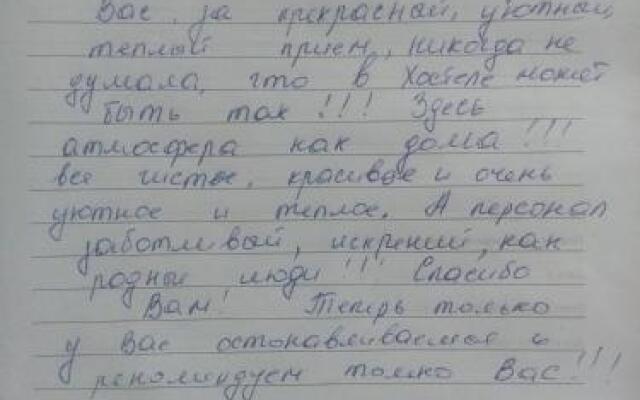 Вас за прекрасный, уютный,
теплый прием, никогда не
думала, что в хостеле может
быть так!!! Здесь
атмосфера как дома!!!
все чистое, красивое и очень
уютное и теплое. А персонал
заботливый, искрений, как
родные люди!!! Спасибо
Вам! Теперь только
у Вас останавливаемся и
рекомендуем только Вас!!!